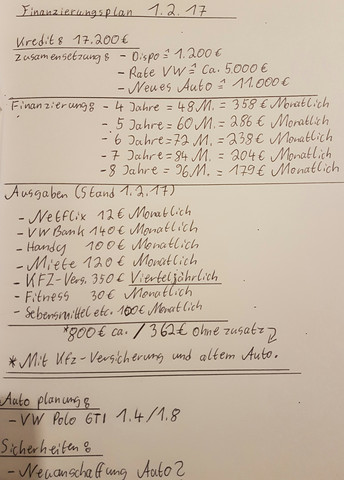 Finanzierungsplan 1.2.17
Kredit: 17.200€
Zusamensetzung: - Dispo ≙ 1.200€
- Rate VW ≙ ca. 5.000€
- Neues Auto ≙ 11.000€
Finanzierung: - 4 Jahre = 48 M. = 358€ Monatlich
- 5 Jahre = 60 M. = 286€ Monatlich
- 6 Jahre = 72 M. = 238€ Monatlich
- 7 Jahre = 84 M. = 204€ Monatlich
- 8 Jahre = 96 M. = 179€ Monatlich
Ausgaben (Stand 1.2.17)
- Netflix 12€ Monatlich
- VW Bank 140€ Monatlich
- Handy 100€ Monatlich
- Miete 120€ Monatlich
- KFZ-Vers. 350€ Vierteljährlich
- Fitness 30€ Monatlich
- Lebensmittel etc. 100€ Monatlich
*800€ ca. / 362€ ohne zusatz
* Mit Kfz-Versicherung und altem Auto.
Auto planung:
- VW Polo GTI 1.4/1.8
Sicherheiten:
- Neuanschaffung Auto?